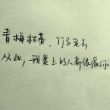 青梅枯萎，竹马老去
从此，我爱上的人都很像你